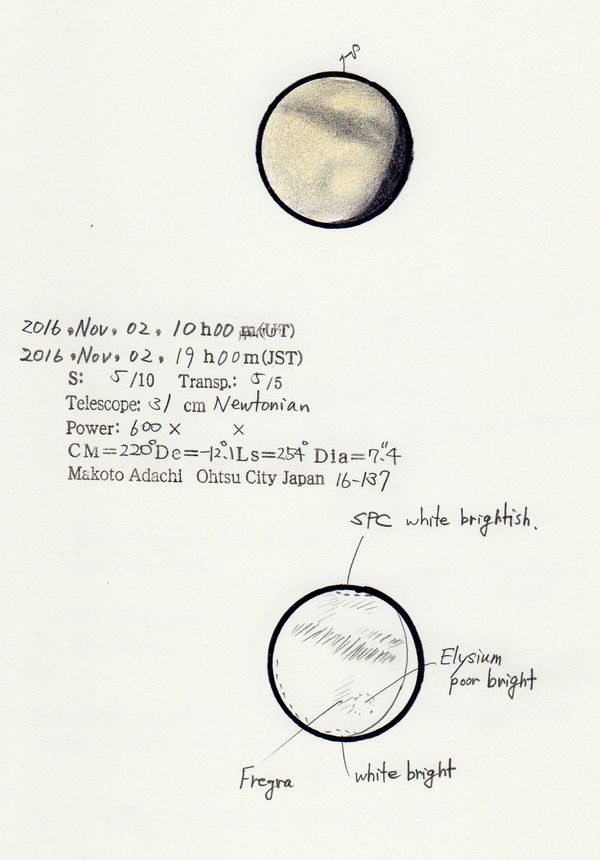 P
2016, Nov, 02, 10h00m(UT)
2016, Nov, 02, 19h00m(JST)
S: 5/10 Transp.: 5/5
Telescope: 31 cm Newtonian
Power: 600× ×
CM=220° De=-12.1 Ls=254° Dia=7."4
Makoto Adachi Ohtsu City Japan 16-137
SPC white brightish.
Elysium
poor bright
Fregra
white bright